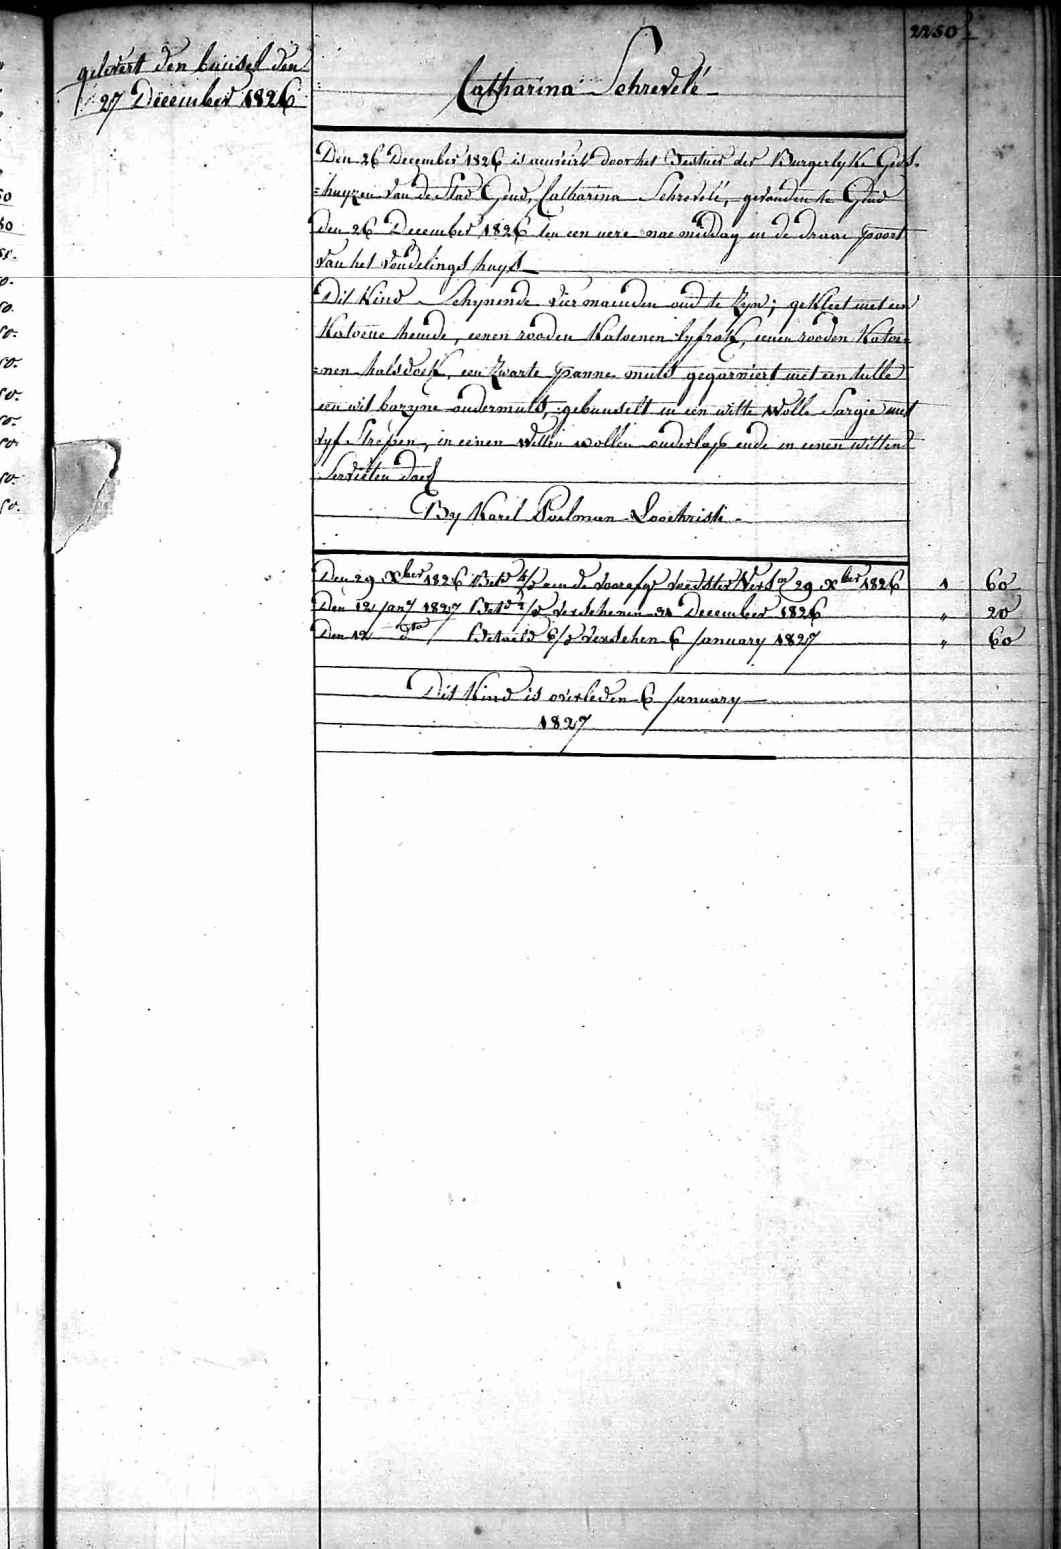 2250
gelevert den buusel den
27 December 1826
Catharina Schrevelé
Den 26 December 1826 is aenveirt door het Bestuer der Burgerlyke Gods-
=huyzen van de Stad Gend, Catharina Schrevelé, gevonden te Gend
den 26 December 1826 ten een uere nae middag in de draai poort
van het vondelings huys
Dit Kind Schynende vier maenden oud te zyn; gekleet met een
Katoene hemde, eenen rooden Katoenen lyfrok, eenen rooden Katoe=
=nen halsdoek, een zwarte panne muts gegarniert met een tulle
een wit bazyne ondermuts, gebunselt in een witte wolle Sargie met
vyf Strepen, in eenen witten wollen onderlap ende in eenen witten
Servietten doek
By Karel Poelman Loochristi
Den 29 Xber 1826 Bet. aen de voors. voedster Vers. 29 Xber 1826 1 60
Den 12 Jany 1827 Bet. verschenen 31 December 1826 " 20
Den 12 dto Betaeld verschen 6 January 1827 " 60
Dit Kind is overleden 6 January
1827